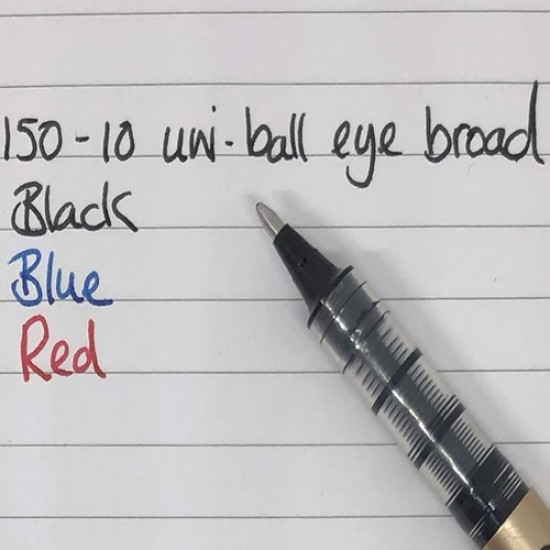 150-10 uni-ball eye broad
Black
Blue
Red